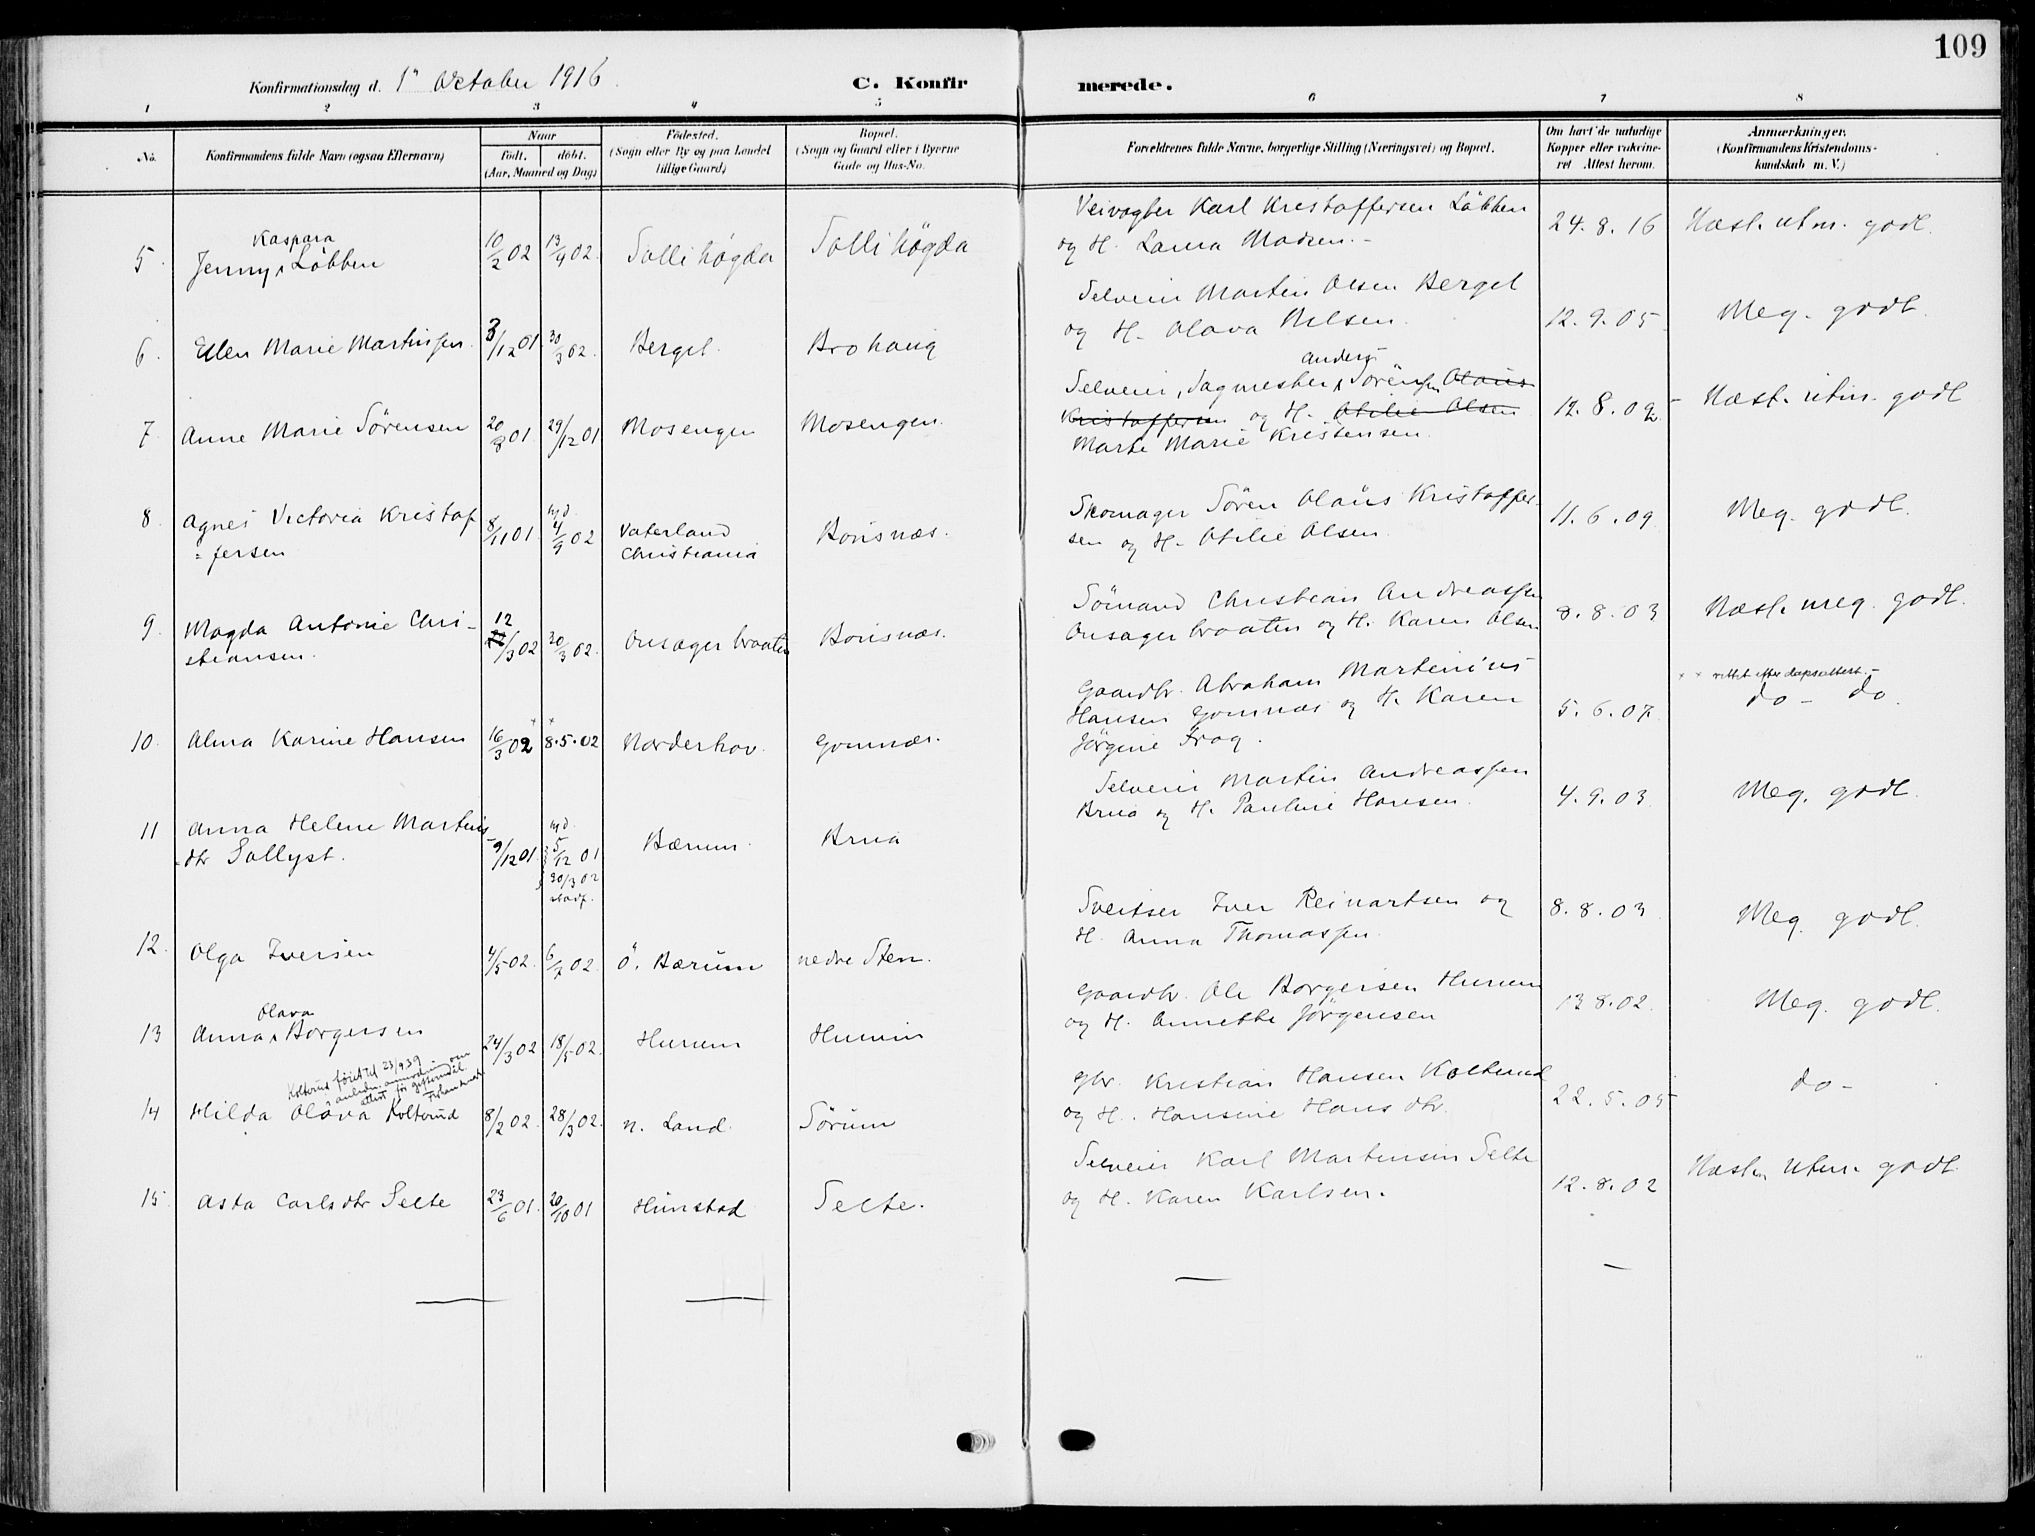 109
Konfirmationsdag d. 1ⁿ October 1916. C. Konfirmerede.
1 2 3 4 5 6 7 8
No. Konfirmandens fulde Navn (ogsaa Efternavn) Naar født. døbt. (Aar, Maaned og Dag) Fødested. (Sogn eller By og paa Landet tillige Gaard) Bopæl. (Sogn og Gaard eller i Byerne Gade og Hus-No. Forældrenes fulde Navne, borgerlige Stilling (Næringsvei) og Bopæl. Om havt de naturlige Kopper eller vakcineret Attest herom. Anmærkninger. (Konfirmandens Kristendomskundskab m. V.)
5. Jenny Kaspara Løbben 10/2 02 13/4 02. Sollihøgda Sollihøgda Veivogter Karl Kristoffersen Løbben
og H. Laura Madsen.- 24.8.16 Næst. utm. godt.
6. Ellen Marie Martinsen. 3/12 01 30/3 02. Berget. Brohaug Selveier Martin Olsen Berget
og H. Olava Nilsen. 12.9.05. Meg. godt.
7. Anne Marie Sørensen 20/8 01 29/12 01 Mosengen Mosengen. Selveier, Sagmester Anders Sørensen Olaus
Kristoffersen og H. Otilie Olsen
Marte Marie Kristensen. 12.8.02 Næst. utm. godt
8. Agnes Victoria Kristof
=fersen 8/11 01 hjd. 4/9 02 Vaterland
Christiania Bonsnæs. Skomager Søren Olaus Kristoffer-
sen og H. Otilie Olsen 11.6.09 Meg. godt.
9. Magda Antonie Chri-
stiansen. 12/3 02 30/3 02. Onsagerbraaten Bonsnæs. Sømand Christian Andreassen
Onsagerbraaten og H. Karen Olsen. 8.8.03 Næst. meg. godt.
10. Alma Karine Hansen 16/3 02 * * 8.5.02 Norderhov. Gomnæs. Gaardbr. Abraham Martinius
Hansen Gomnæs og H. Karen
Jørgine Frog. 5.6.07. * * rettet efter daapsattest.-
do - do.
11 Anna Helene Martins
=dtr Sollyst. 9/12 01 hjd. 5/12 01
30/3 02
stadf. Bærum. Brua Selveier Martin Andreassen
Brua og H. Pauline Hansen. 4.9.03. Meg. godt.
12. Olga Iversen 4/5 02. 6/7 02. Ö. Bærum nedre Sten. Sveitser Iver Reinartsen og
H. Anna Thomassen. 8.8.03. Meg. godt.
13 Anna Olava Borgersen 24/3 02 18/5 02. Hurum Hurum Gaardbr. Ole Borgersen Hurum
og H. Annette Jørgensen 13 8.02. Meg. godt.
Kolterud føiet til 23/9 39
14 Hilda Olava Kolterud 8/2 02. 28/3 02. n. Land. Sørum Gbr. Kristian Hansen Kolterud
og H. Hansine Hansdtr. 22.5.05 do-
15. Asta Carlsdtr Selte 23/6 01. 20/10 01 Hunstad Selte. Selveier Karl Martinsen Selte
og H. Karen Karlsen. 12.8.02 Næsten utm. godt.